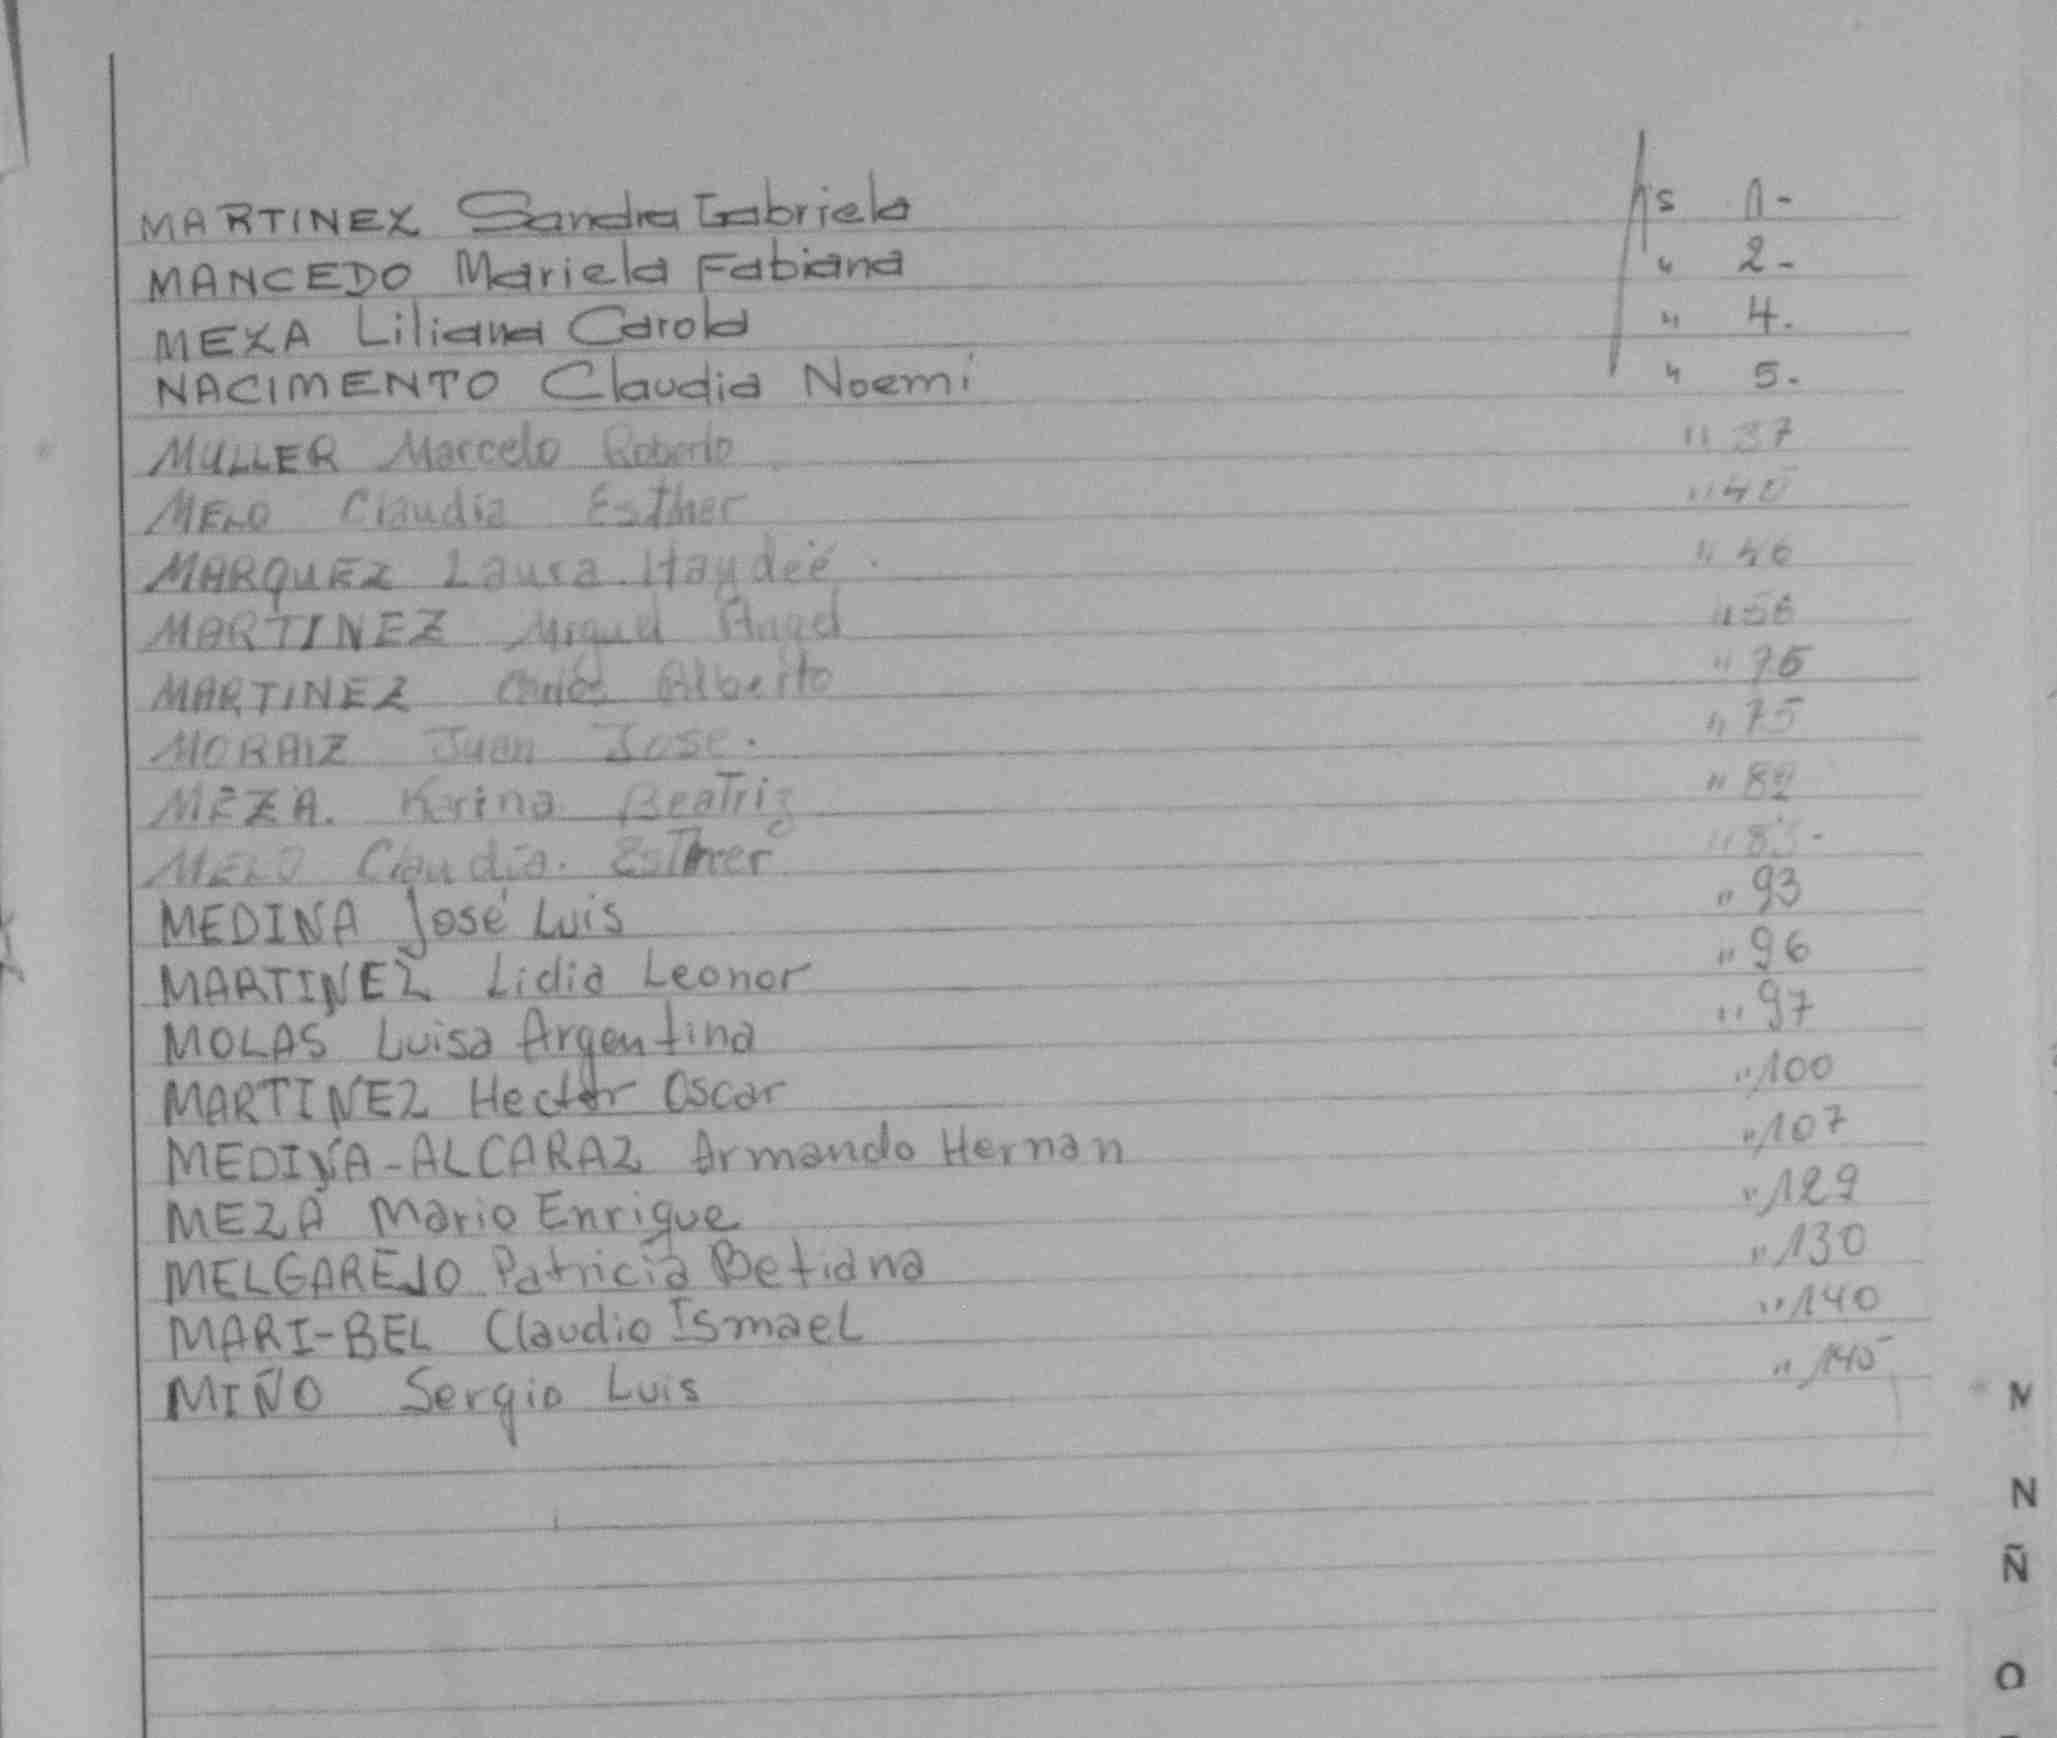 MARTINEZ Sandra Gabriela fs 1-
MANCEDO Mariela Fabiana " 2-
MEZA Liliana Carola " 4.
NACIMENTO Claudia Noemi " 5.
MULLER Marcelo Roberto " 37
MELO Claudia Esther " 40
MARQUEZ Laura Haydeé. " 46
MARTINEZ Miguel Angel " 56
MARTINEZ Carlos Alberto "
MORAIZ Juan Jose. " 75
MEZA. Karina Beatriz " 82
MELO Claudia. Esther "
MEDINA José Luis " 93
MARTINEZ Lidia Leonor " 96
MOLAS Luisa Argentina " 97
MARTINEZ Hector Oscar " 100
MEDINA-ALCARAZ Armando Hernan " 107
MEZA Mario Enrique " 129
MELGAREJO Patricia Betiana " 130
MARI-BEL Claudio Ismael " 140
MIÑO Sergio Luis " 145
M
N
Ñ
O